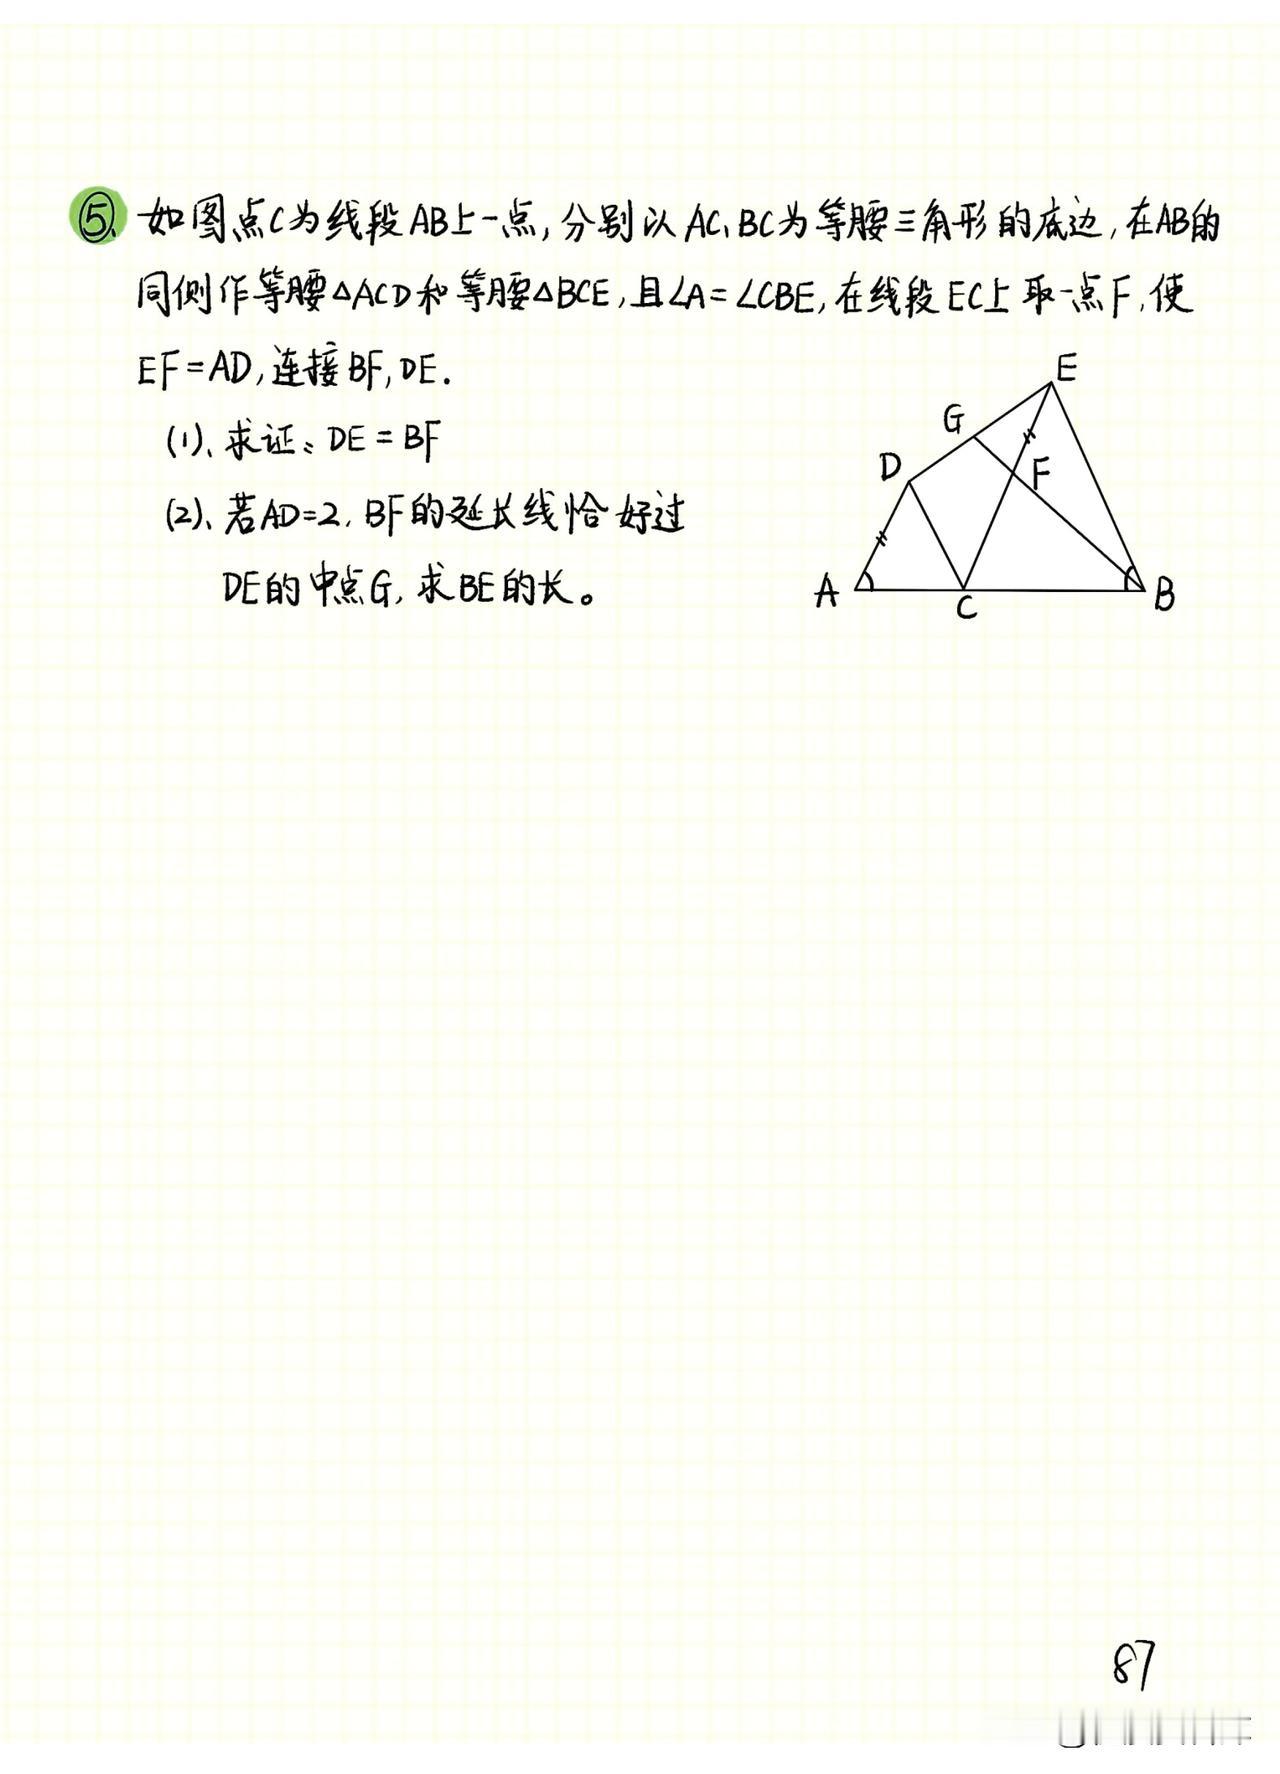 ⑤、如图点C为线段AB上一点,分别以AC、BC为等腰三角形的底边,在AB的
同侧作等腰△ACD和等腰△BCE,且∠A=∠CBE,在线段EC上取一点F,使
EF=AD,连接BF,DE.
(1)、求证:DE=BF
(2)、若AD=2,BF的延长线恰好过
DE的中点G,求BE的长。
E
G
D
F
A
C
B
87